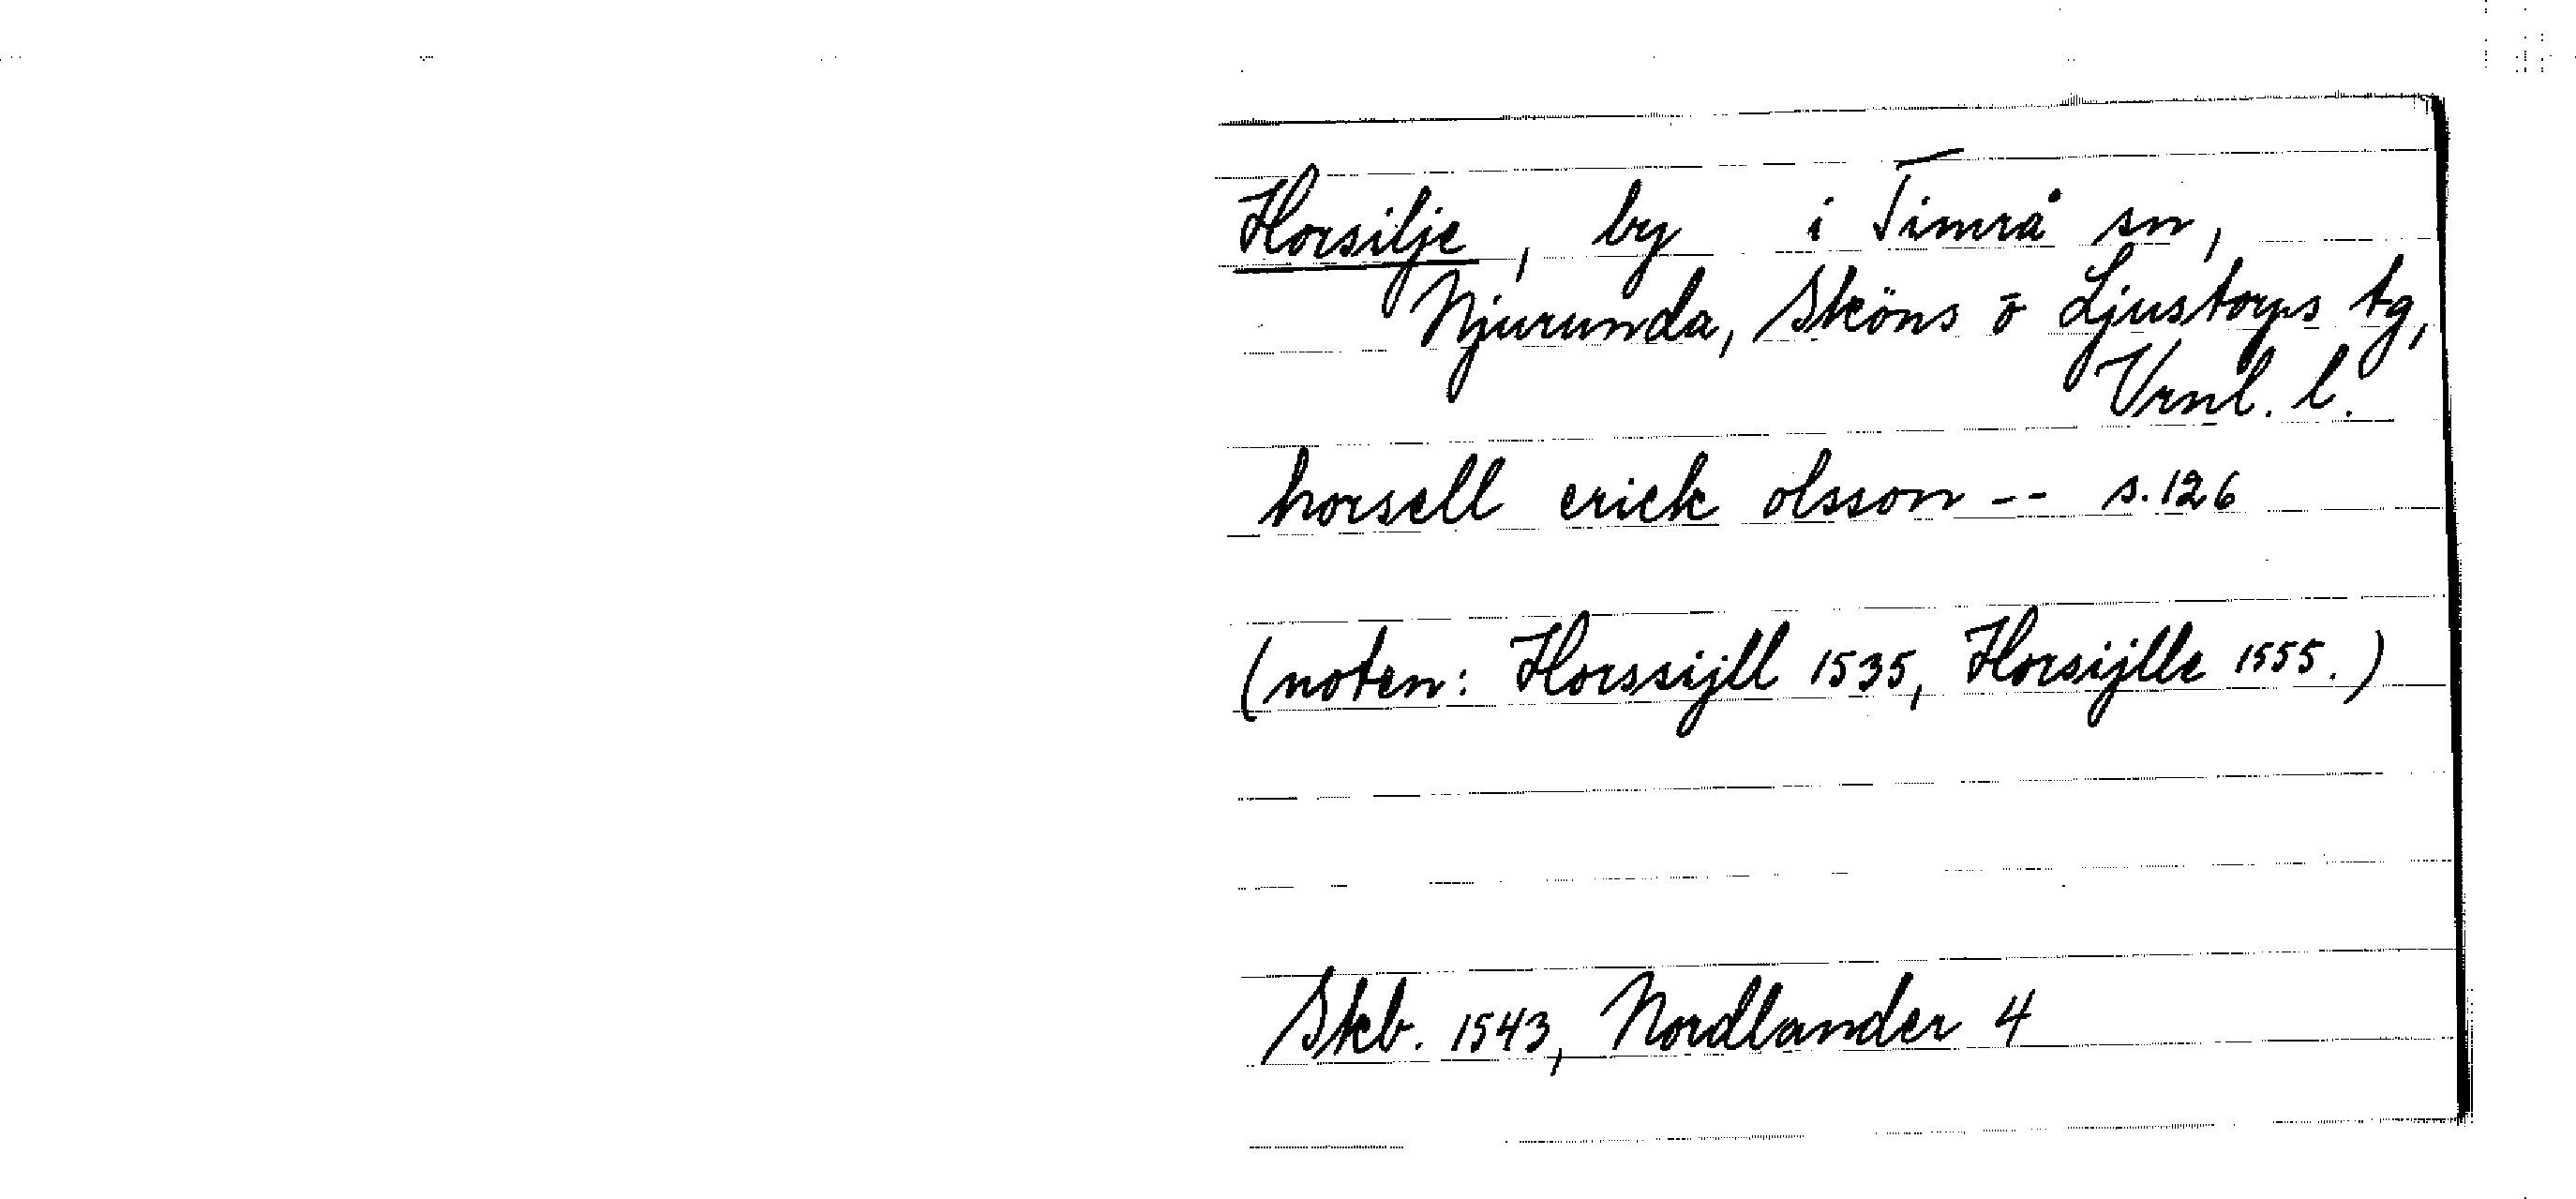 Horsilje, by i Timrå sn,
Njurunda, Sköns o Ljustorps tg,
Vrnl. l.
horsell erick olsson -- s. 126
(noten: Horssijll 1535, Horsijlle 1555.)
Skb. 1543, Nordlander 4